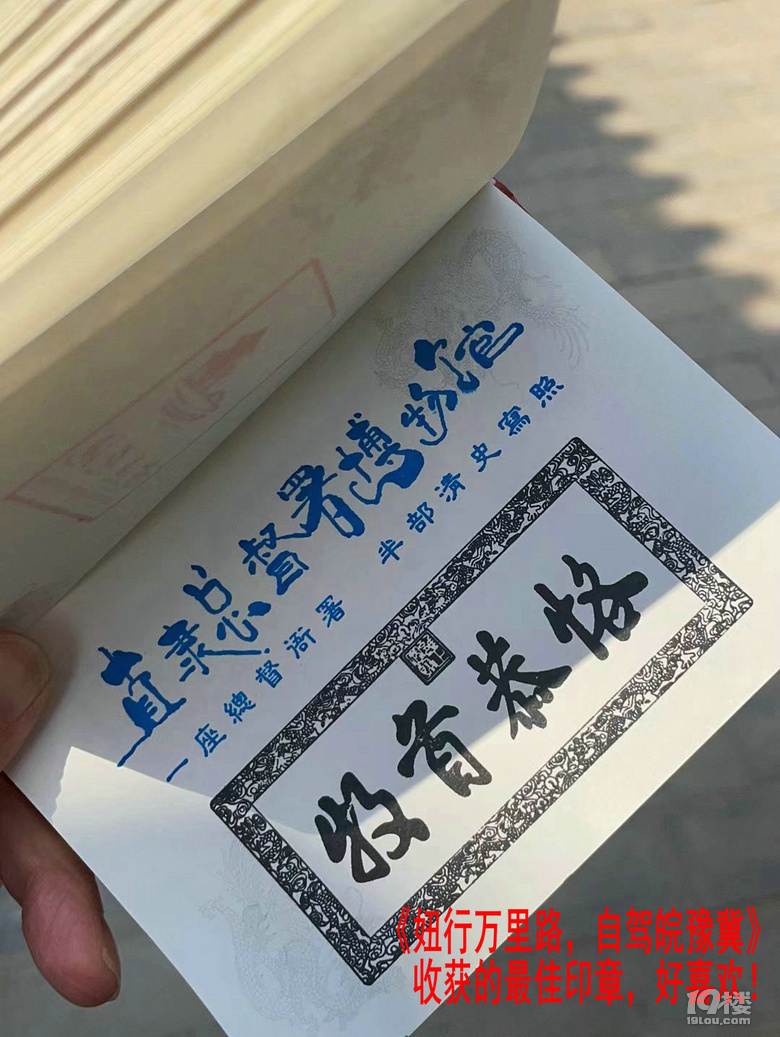 直隶总督署博物馆
一座總督衙署 半部清史寫照
恪恭首牧
《妞行万里路，自驾皖豫冀》
收获的最佳印章，好喜欢！
19楼
19lou.com